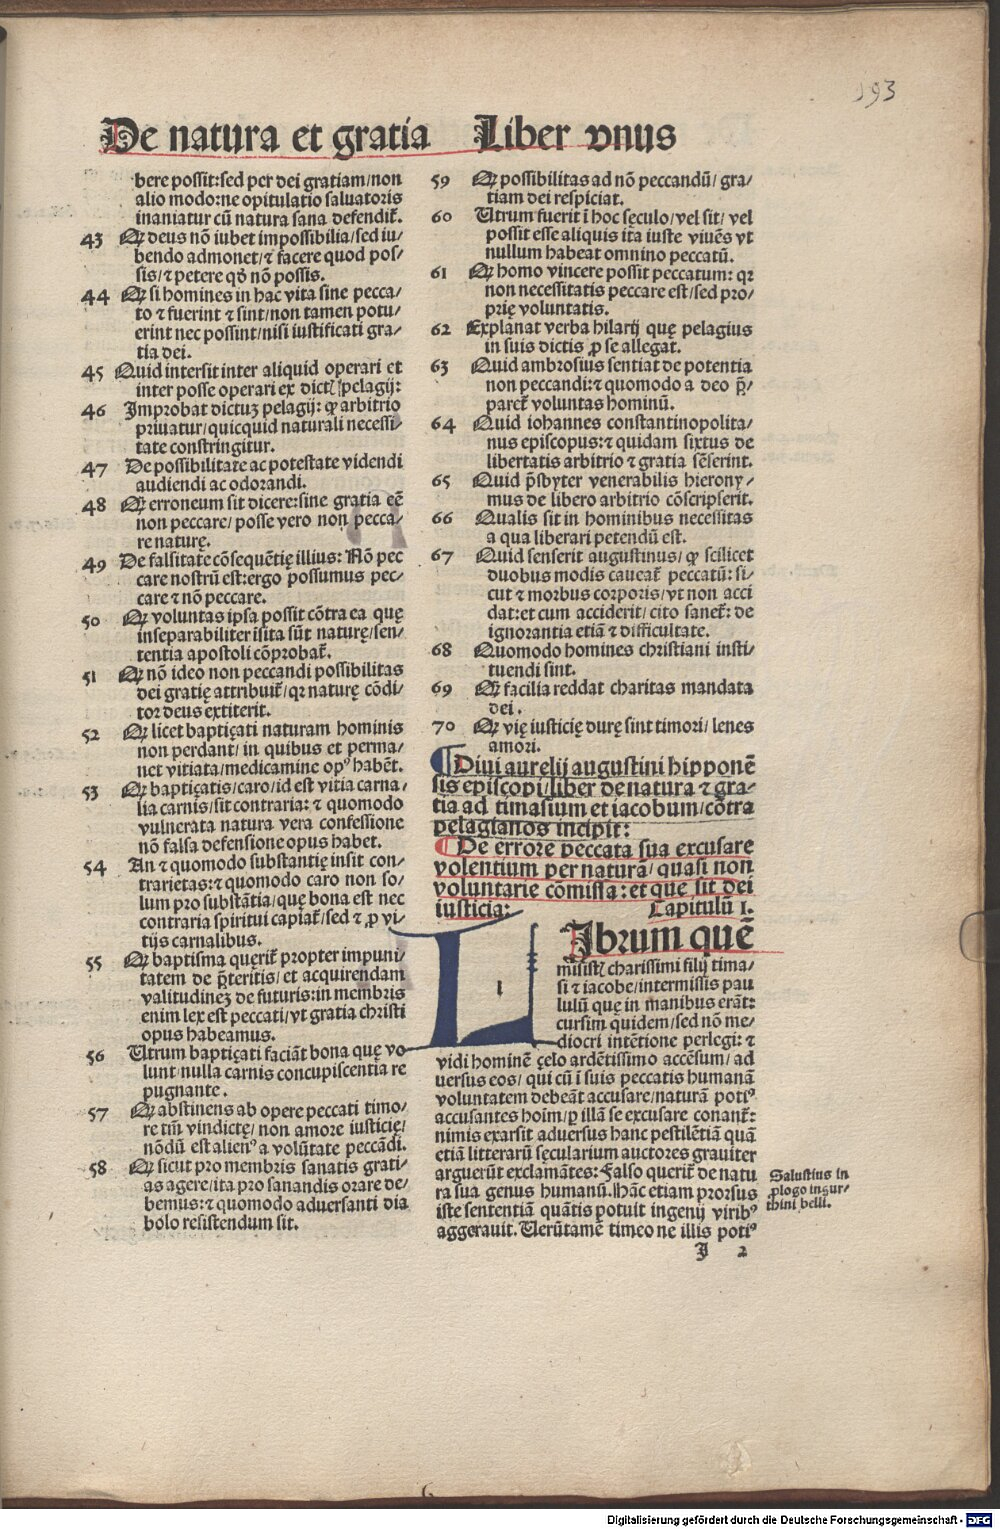 193
De natura et gratia Liber vnus
bere possit:sed per dei gratiam/non
alio modo:ne opitulatio saluatoris
inaniatur cũ natura sana defendit̃.
43 Ꝙ deus nõ iubet impossibilia/sed iu/
bendo admonet/⁊ facere quod pos/
sis/⁊ petere qď nõ possis.
44 Ꝙ si homines in hac vita sine pecca/
to ⁊ fuerint ⁊ sint/non tamen potu/
erint nec possint/nisi iustificati gra/
tia dei.
45 Quid intersit inter aliquid operari et
inter posse operari ex dictꝭ pelagij:
46 Improbat dictuꝫ pelagij: ꝙ arbitrio
priuatur/quicquid naturali necessi/
tate constringitur.
47 De possibilitate ac potestate videndi
audiendi ac odorandi.
48 Ꝙ erroneum sit dicere:sine gratia eẽ
non peccare/posse vero non pecca/
re naturę.
49 De falsitate cõsequẽtię illius: Nõ pec
care nostrũ est:ergo possumus pec/
care ⁊ nõ peccare.
50 Ꝙ voluntas ipsa possit cõtra ea quę
inseparabiliter ĩsita sũt naturę/sen/
tentia apostoli cõprobat̃.
51 Ꝙ nõ ideo non peccandi possibilitas
dei gratię attribuit̃/qꝛ naturę cõdi/
tor deus extiterit.
52 Ꝙ licet baptiçati naturam hominis
non perdant/in quibus et perma/
net vitiata/medicamine opꝰ habẽt.
53 Ꝙ baptiçatis/caro/id est vitia carna/
lia carnis/sit contraria: ⁊ quomodo
vulnerata natura vera confessione
nõ falsa defensione opus habet.
54 An ⁊ quomodo substantię insit con/
trarietas:⁊ quomodo caro non so/
lum pro substãtia/quę bona est nec
contraria spiritui capiat̃/sed ⁊ ꝓ vi/
tijs carnalibus.
55 Ꝙ baptisma querit̃ propter impuni/
tatem de p̃teritis/et acquirendam
valitudineꝫ de futuris:in membris
enim lex est peccati/vt gratia christi
opus habeamus.
56 Utrum baptiçati faciãt bona quę vo
lunt nulla carnis concupiscentia re
pugnante.
57 Ꝙ abstinens ab opere peccati timo/
re tm̃ vindictę/non amore iusticię/
nõdũ est alienꝰ a volũtate peccãdi.
58 Ꝙ sicut pro membris sanatis grati/
as agere/ita pro sanandis orare de/
bemus:⁊ quomodo aduersanti dia
bolo resistendum sit.
59 Ꝙ possibilitas ad nõ peccandũ/gra/
tiam dei respiciat.
60 Utrum fuerit ĩ hoc sęculo/vel sit/vel
possit esse aliquis ita iuste viuẽs vt
nullum habeat omnino peccatũ.
61 Ꝙ homo vincere possit peccatum: qꝛ
non necessitatis peccare est/sed pro/
prię voluntatis.
62 Explanat verba hilarij quę pelagius
in suis dictis ꝓ se allegat.
63 Quid ambrosius sentiat de potentia
non peccandi:⁊ quomodo a deo p̃/
paret̃ voluntas hominũ.
64 Quid iohannes constantinopolita/
nus episcopus:⁊ quidam sixtus de
libertatis arbitrio ⁊ gratia sẽserint.
65 Quid p̃sbyter venerabilis hierony/
mus de libero arbitrio cõscripserit.
66 Qualis sit in hominibus necessitas
a qua liberari petendũ est.
67 Quid senserit augustinus/ꝙ scilicet
duobus modis caueat̃ peccatũ: si/
cut ⁊ morbus corporis/vt non acci
dat:et cum acciderit/cito sanet̃: de
ignorantia etiã ⁊ difficultate.
68 Quomodo homines christiani insti/
tuendi sint.
69 Ꝙ facilia reddat charitas mandata
dei.
70 Ꝙ vię iusticię durę sint timori/lenes
amori.
¶Diui aurelij augustini hipponẽ
sis episcopi/liber de natura ⁊ gra/
tia ad timasium et iacobum/cõtra
pelagianos incipit:
¶De errore peccata sua excusare
volentium per naturã/quasi non
voluntarie cõmissa: et que sit dei
iusticia: Capitulũ I.
LIbrum quẽ
misistꝭ charissimi filij tima/
si ⁊ iacobe/intermissis pau
lulũ quę in manibus erãt:
cursim quidem/sed nõ me/
diocri intẽtione perlegi: ⁊
vidi hominẽ çelo ardẽtissimo accẽsum/ad
uersus eos/qui cũ ĩ suis peccatis humanã
voluntatem debeãt accusare/naturã potiꝰ
accusantes hoĩm/ꝑ illã se excusare conant̃:
nimis exarsit aduersus hanc pestilẽtiã quã
etiã litterarũ sęcularium auctores grauiter
arguerũt exclamãtes: Falso querit̃ de natu
ra sua genus humanũ. Hãc etiam prorsus
iste sententiã quãtis potuit ingenij viribꝰ
aggerauit. Uerũtamẽ timeo ne illis potiꝰ
Salustius in
ꝓlogo ingur/
thini belli.
I 2
Digitalisierung gefördert durch die Deutsche Forschungsgemeinschaft - DFG